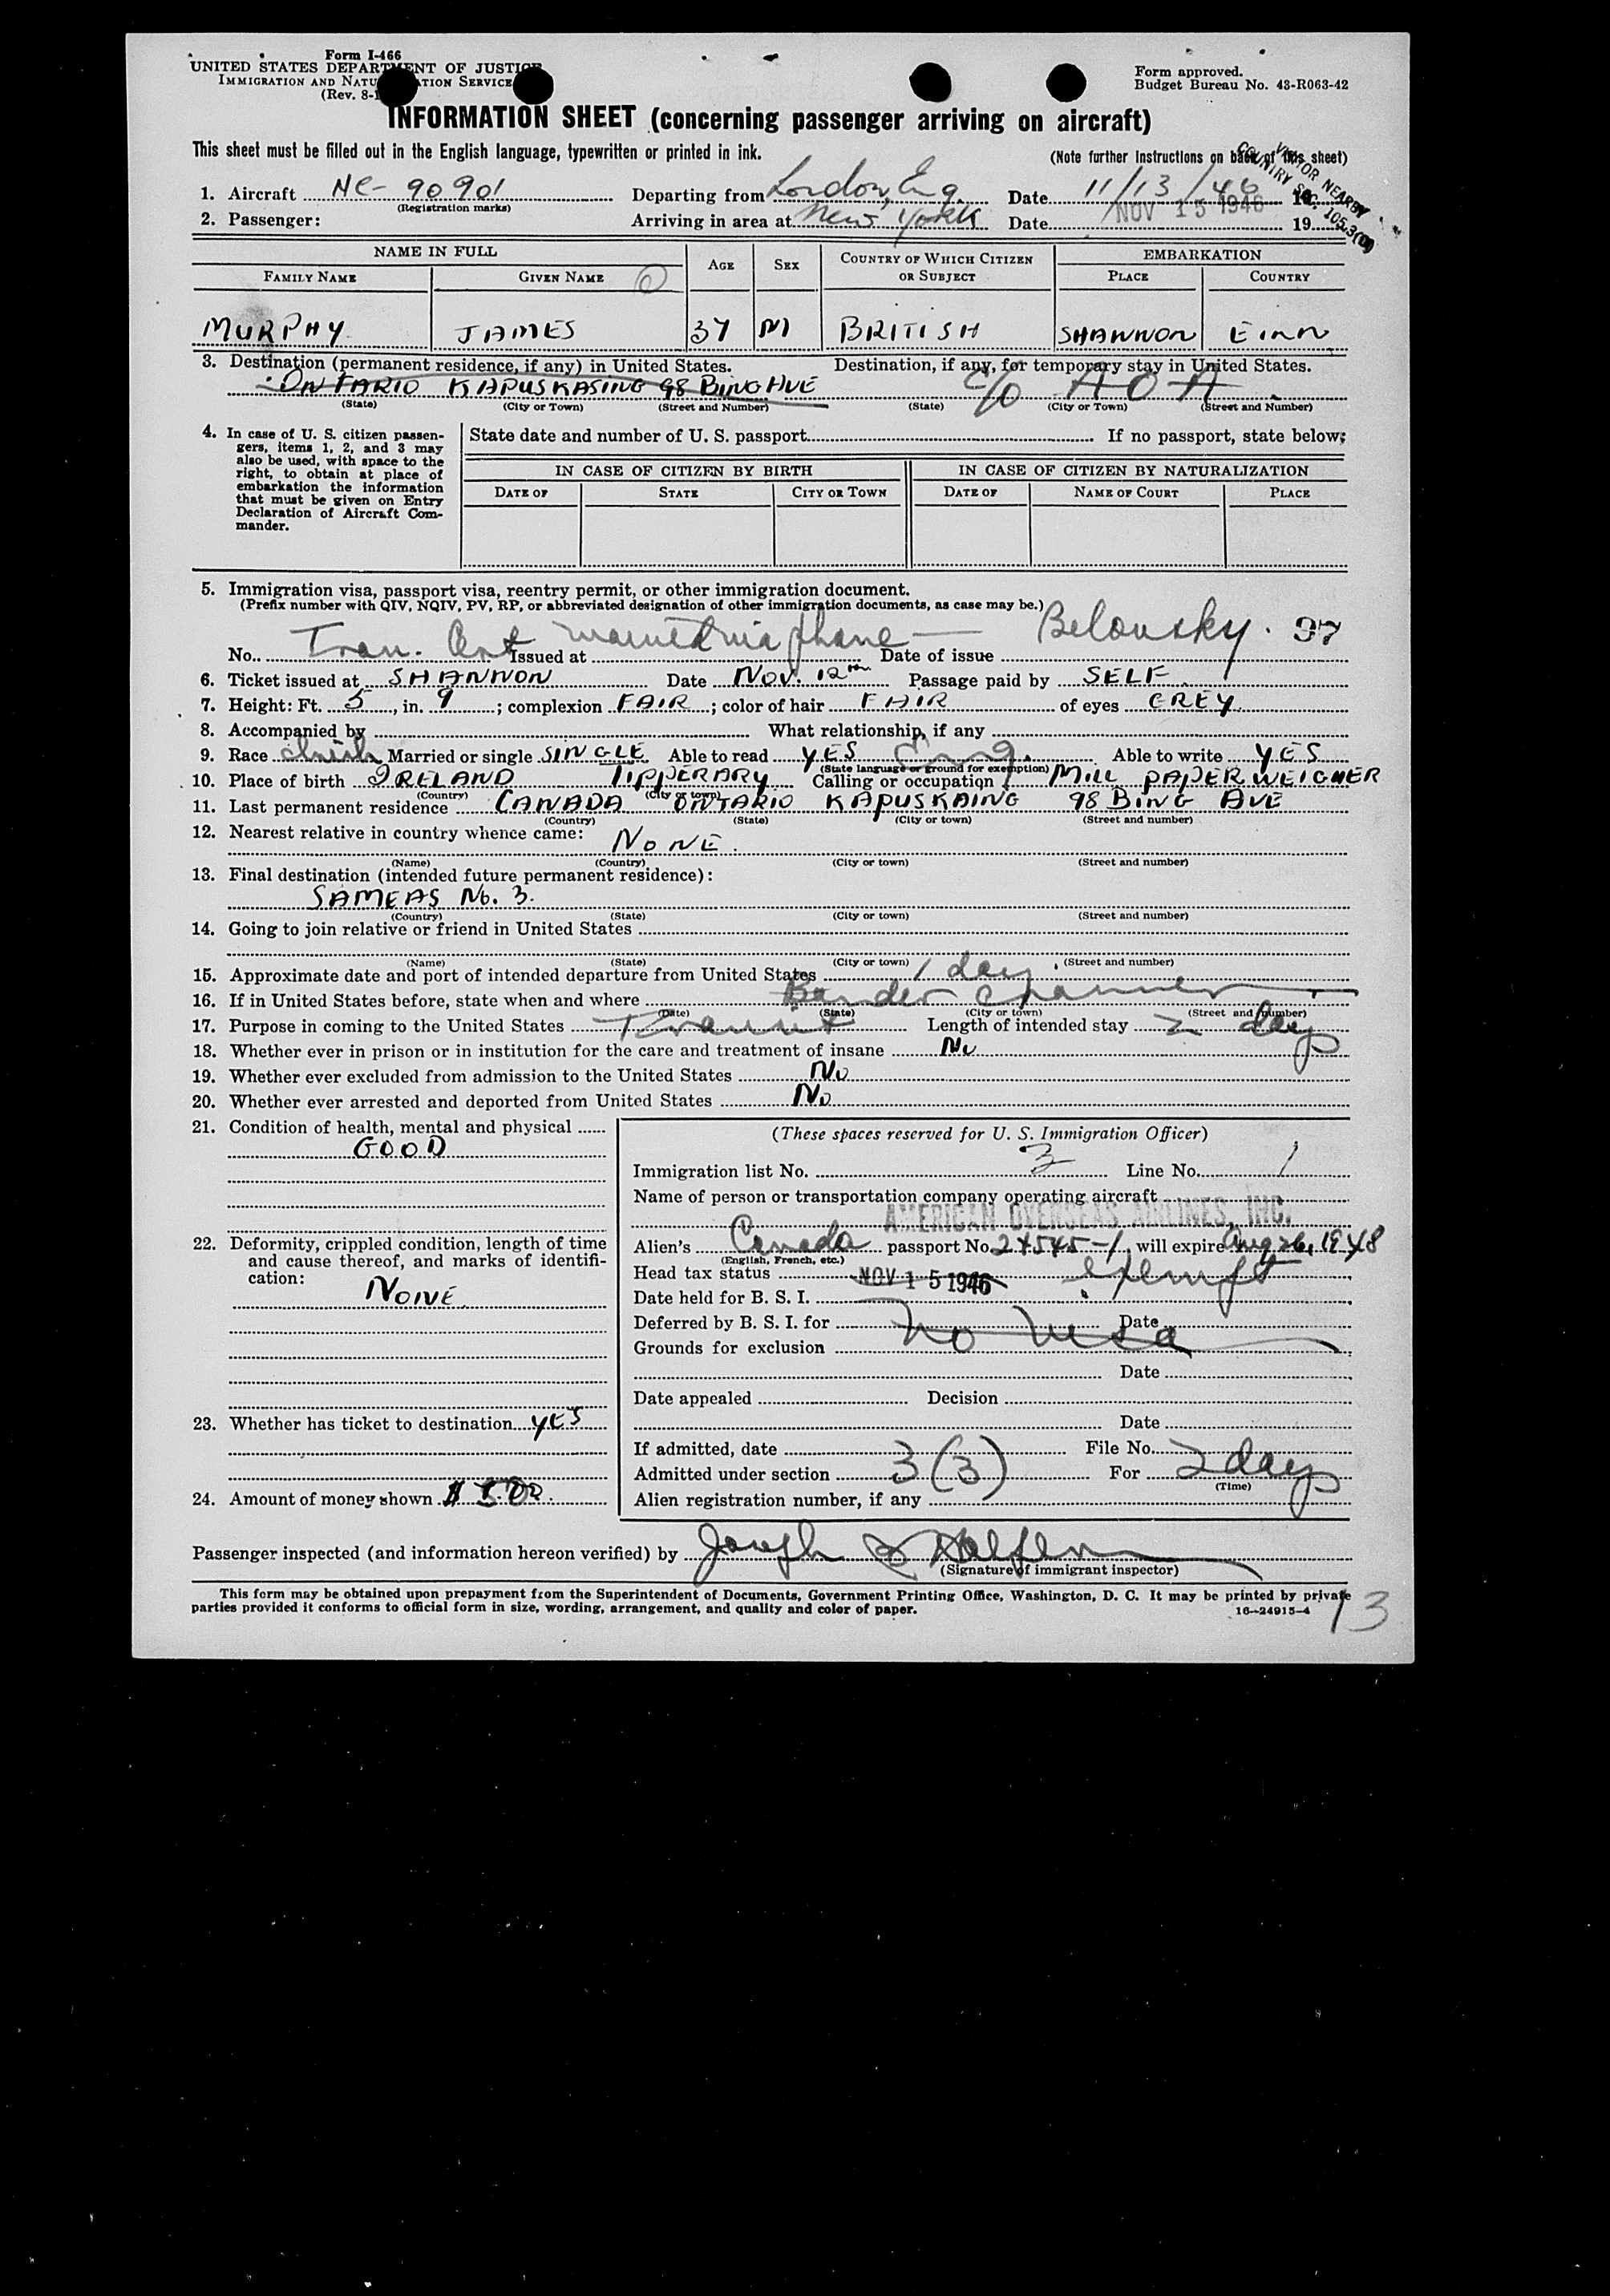 Form I-466
UNITED STATES DEPARTMENT OF JUSTICE
IMMIGRATION AND NATURALIZATION SERVICE
(Rev. 8-1
Form approved.
Budget Bureau No. 43-R063-42
INFORMATION SHEET (concerning passenger arriving on aircraft)
This sheet must be filled out in the English language, typewritten or printed in ink.
(Note further Instructions on back of this sheet)
VISITOR NEARBY
COUNTRY SEC. 105.3(D)
1. Aircraft NC- 90901 Departing from London, Eng. Date 11/13/46 19
(Registration marks)
2. Passenger: Arriving in area at New York Date NOV 15 1946 19
NAME IN FULL AGE SEX COUNTRY OF WHICH CITIZEN OR SUBJECT EMBARKATION
FAMILY NAME GIVEN NAME PLACE COUNTRY
MURPHY JAMES 37 M BRITISH SHANNON EIRR
3. Destination (permanent residence, if any) in United States. Destination, if any, for temporary stay in United States.
ONTARIO KAPUSKASING 98 BING AVE c/o AOA
(State) (City or Town) (Street and Number) (State) (City or Town) (Street and Number)
4. In case of U. S. citizen passengers, items 1, 2, and 3 may also be used, with space to the right, to obtain at place of embarkation the information that must be given on Entry Declaration of Aircraft Commander.
State date and number of U. S. passport If no passport, state below:
IN CASE OF CITIZEN BY BIRTH IN CASE OF CITIZEN BY NATURALIZATION
DATE OF STATE CITY OR TOWN DATE OF NAME OF COURT PLACE
5. Immigration visa, passport visa, reentry permit, or other immigration document.
(Prefix number with QIV, NQIV, PV, RP, or abbreviated designation of other immigration documents, as case may be.)
No. Tran. Cert Issued at waived via phone Date of issue Belousky. 97
6. Ticket issued at SHANNON Date NOV. 12th Passage paid by SELF
7. Height: Ft. 5, in. 9; complexion FAIR; color of hair FAIR of eyes GREY
8. Accompanied by What relationship, if any
9. Race Irish Married or single SINGLE Able to read YES Eng. Able to write YES
(State language or ground for exemption)
10. Place of birth IRELAND TIPPERARY Calling or occupation MILL PAPER WEIGHER
(Country) (City or town)
11. Last permanent residence CANADA ONTARIO KAPUSKAING 98 BING AVE
(Country) (State) (City or town) (Street and number)
12. Nearest relative in country whence came: NONE.
(Name) (Country) (City or town) (Street and number)
13. Final destination (intended future permanent residence):
SAME AS No. 3.
(Country) (State) (City or town) (Street and number)
14. Going to join relative or friend in United States
(Name) (State) (City or town) (Street and number)
15. Approximate date and port of intended departure from United States 1 day
16. If in United States before, state when and where Border
(Date) (State) (City or town) (Street and number)
17. Purpose in coming to the United States Transit Length of intended stay 2 days
18. Whether ever in prison or in institution for the care and treatment of insane No
19. Whether ever excluded from admission to the United States No
20. Whether ever arrested and deported from United States No
21. Condition of health, mental and physical
GOOD
22. Deformity, crippled condition, length of time and cause thereof, and marks of identification:
NONE
23. Whether has ticket to destination YES
24. Amount of money shown
(These spaces reserved for U. S. Immigration Officer)
Immigration list No. 3 Line No. 1
Name of person or transportation company operating aircraft
AMERICAN OVERSEAS AIRLINES, INC.
Alien's Canada passport No. 24545-1, will expire Aug 26, 1948
(English, French, etc.)
Head tax status exempt
Date held for B. S. I. NOV 15 1946
Deferred by B. S. I. for Date
Grounds for exclusion no visa
Date
Date appealed Decision
Date
If admitted, date File No.
Admitted under section 3(3) For 2 days
(Time)
Alien registration number, if any
Passenger inspected (and information hereon verified) by Joseph
(Signature of immigrant inspector)
This form may be obtained upon prepayment from the Superintendent of Documents, Government Printing Office, Washington, D. C. It may be printed by private
parties provided it conforms to official form in size, wording, arrangement, and quality and color of paper.
16-24915-4
13